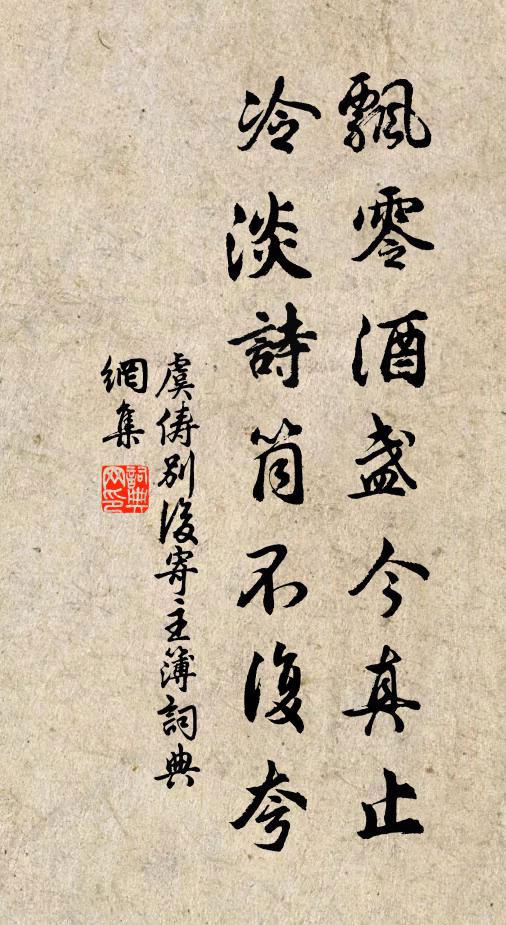 飄零酒盞今真止
冷淡詩筒不復夸
虞儔別後寄主簿詞典
網集
詞典
网印